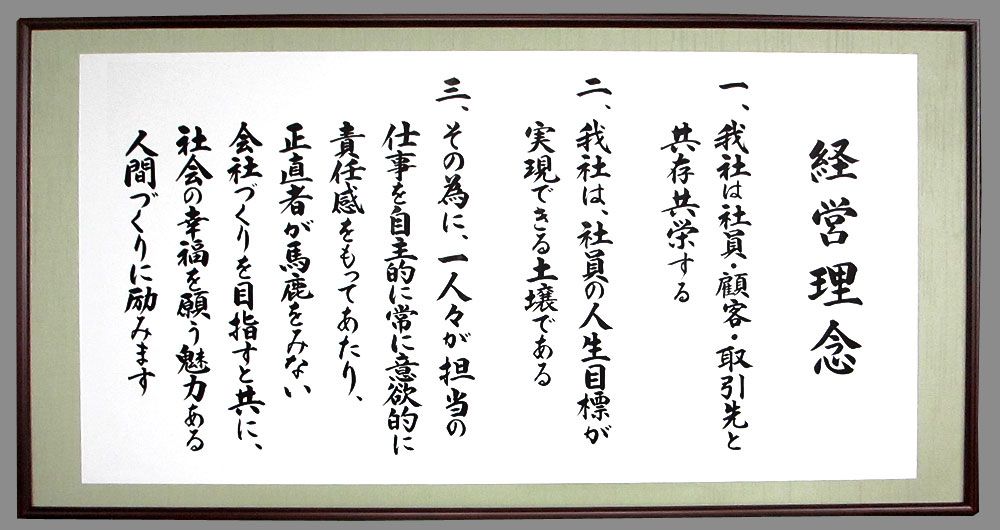 経営理念
一、我社は社員・顧客・取引先と
共存共栄する
二、我社は、社員の人生目標が
実現できる土壌である
三、その為に、一人々が担当の
仕事を自主的に常に意欲的に
責任感をもってあたり、
正直者が馬鹿をみない
会社づくりを目指すと共に、
社会の幸福を願う魅力ある
人間づくりに励みます